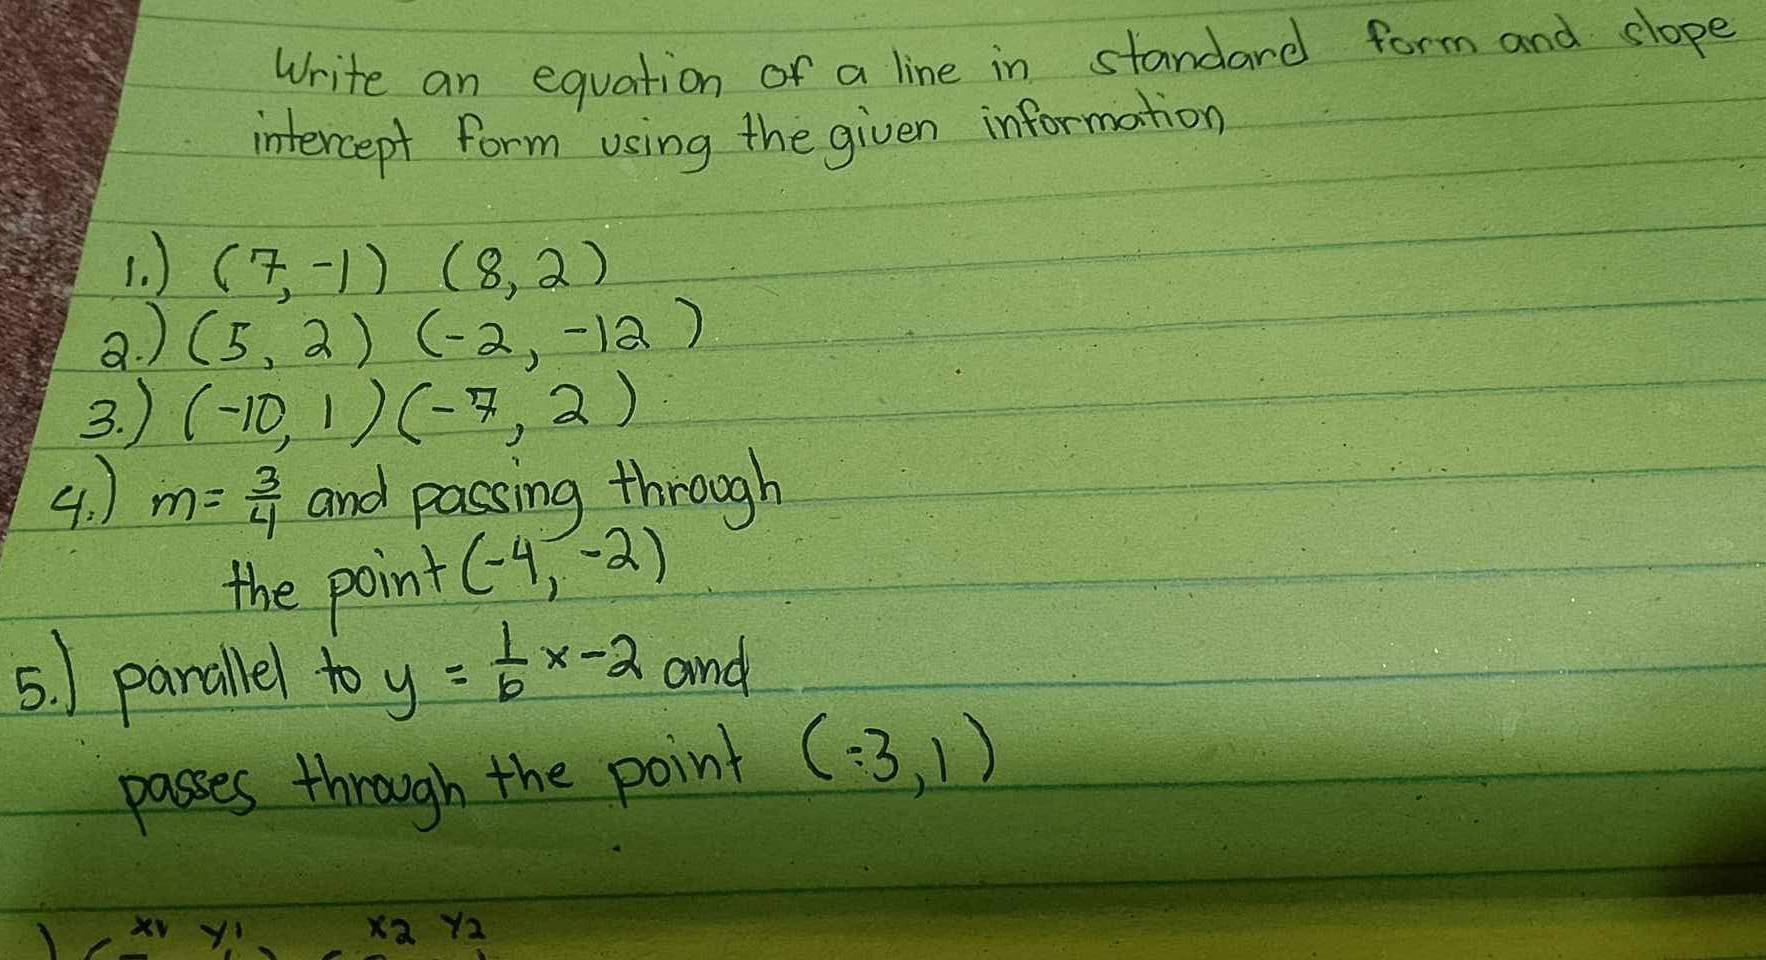 Write an equation of a line in standard form and slope
intercept form using the given information
1.) (7, -1) (8, 2)
2.) (5, 2) (-2, -12)
3.) (-10, 1) (-7, 2)
4.) m = 3/4 and passing through
the point (-4, -2)
5.) parallel to y = 1/6 x - 2 and
passes through the point (-3, 1)
x1 y1 x2 y2